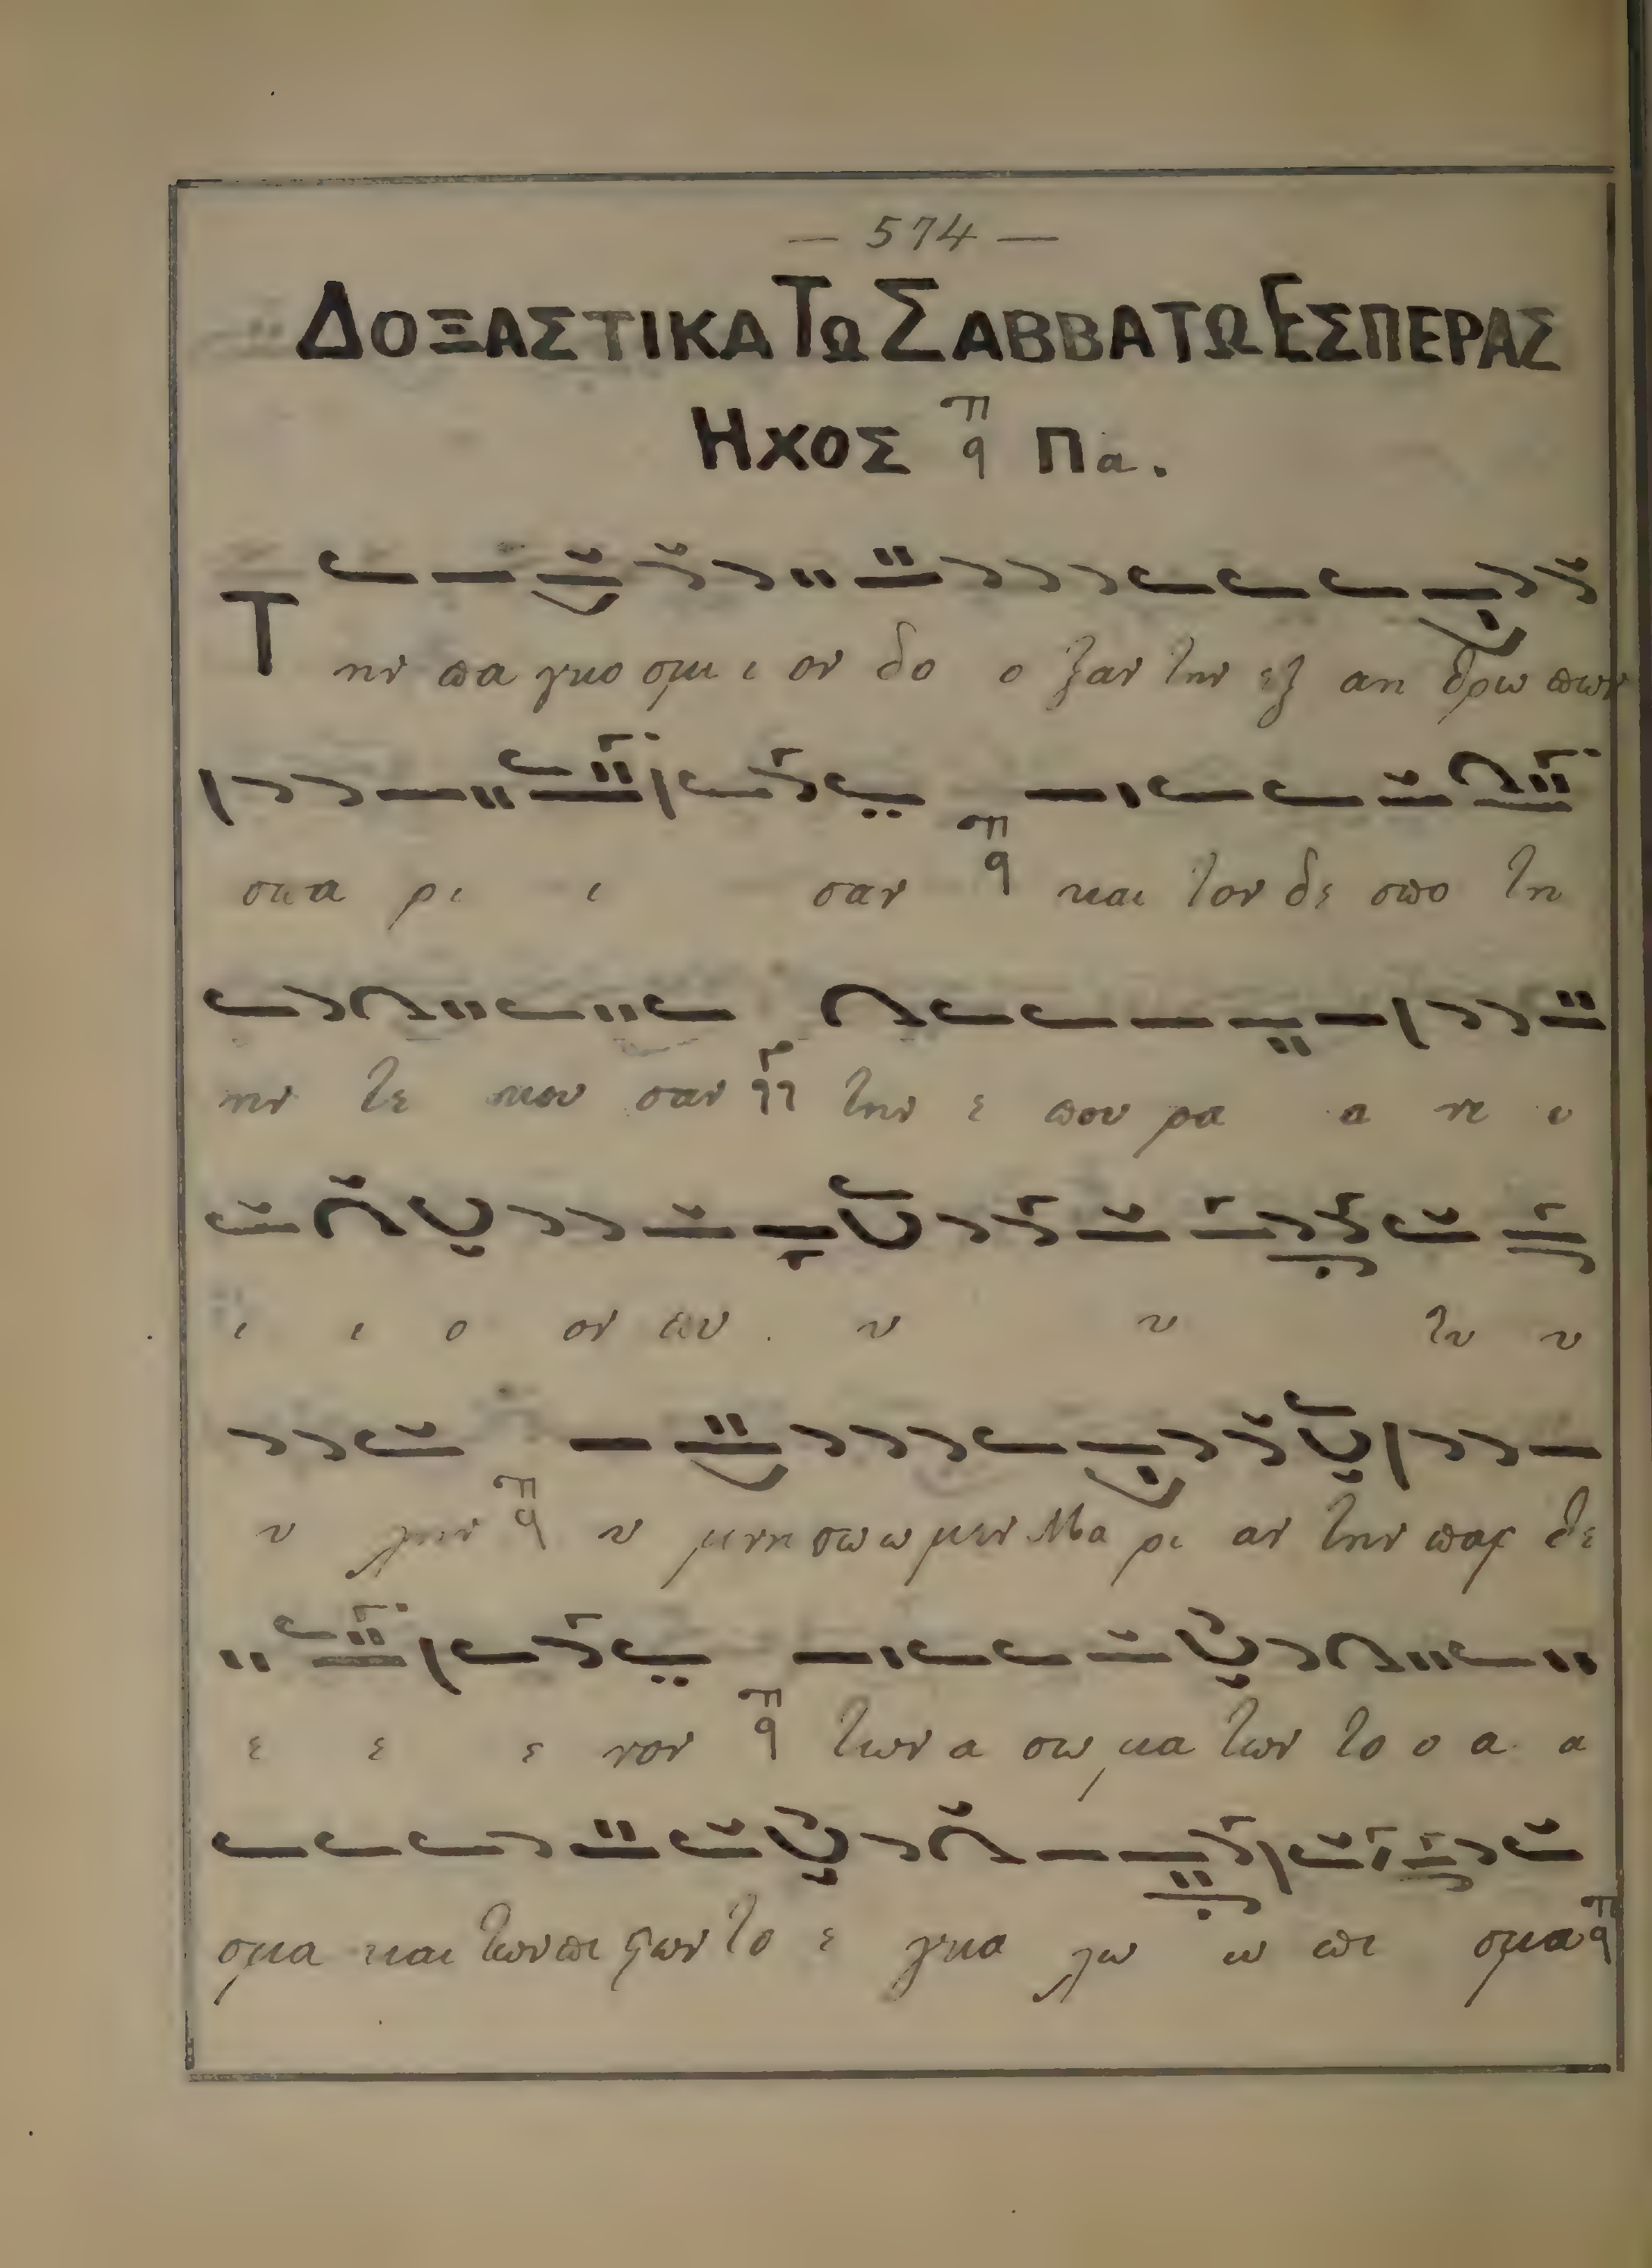 — 574 —
ΔΟΞΑΣΤΙΚΑ ΤΩ ΣΑΒΒΑΤΩ ΕΣΠΕΡΑΣ
ΗΧΟΣ π q Πα.
Την πα γκο σμι ι ον δο ο ξαν την εξ αν θρω πων
σπα ρι ι σαν π q και τον δε σπο τη
ην τε κου σαν την ε που ρα α νι ι
ι ι ο ον πυ υ υ τυ υ
υ λην π q υ μνη σω ω μεν Μα ρι αν την παρ θε
ε ε ε νον π q των α σω μα των το ο α α
σμα και των πι ϛων το ε γκα λω ω πι σμα π q